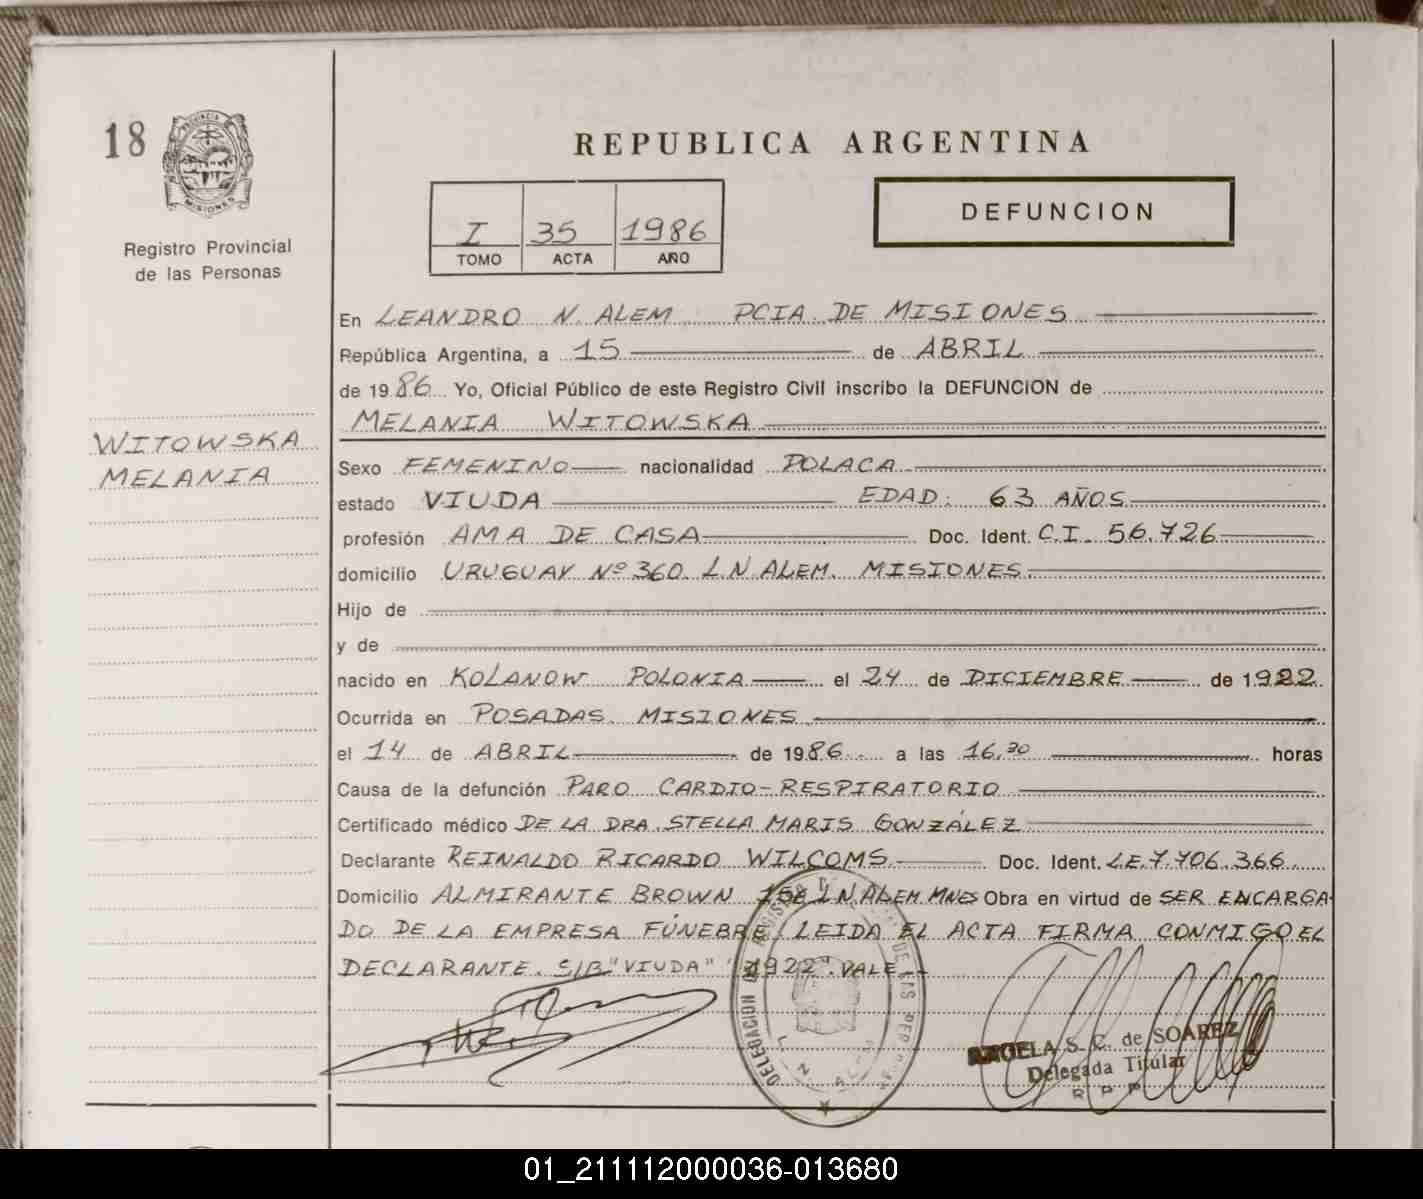 18
PROVINCIA DE
MISIONES
Registro Provincial
de las Personas
REPUBLICA ARGENTINA
I 35 1986
TOMO ACTA AÑO
DEFUNCION
En LEANDRO N. ALEM PCIA. DE MISIONES
República Argentina, a 15 de ABRIL
de 1986 Yo, Oficial Público de este Registro Civil inscribo la DEFUNCION de
MELANIA WITOWSKA
WITOWSKA
MELANIA
Sexo FEMENINO nacionalidad POLACA
estado VIUDA EDAD: 63 AÑOS
profesión AMA DE CASA Doc. Ident. C.I. 56.726
domicilio URUGUAY Nº 360 L.N.ALEM. MISIONES
Hijo de
y de
nacido en KOLANOW POLONIA el 24 de DICIEMBRE de 1922
Ocurrida en POSADAS. MISIONES
el 14 de ABRIL de 1986 a las 16,30 horas
Causa de la defunción PARO CARDIO-RESPIRATORIO
Certificado médico DE LA DRA. STELLA MARIS GONZÁLEZ
Declarante REINALDO RICARDO WILCOMS Doc. Ident. L.E. 7.706.366
Domicilio ALMIRANTE BROWN L.N.ALEM MNES Obra en virtud de SER ENCARGA-
DO DE LA EMPRESA FÚNEBRE. LEIDA EL ACTA FIRMA CONMIGO EL
DECLARANTE. S/B "VIUDA" "1922". VALE.-
DELEGACION DEL REGISTRO DE LAS
L. N. ALEM
S. C. de SOAREZ
Delegada Titular
R P P
01_211112000036-013680